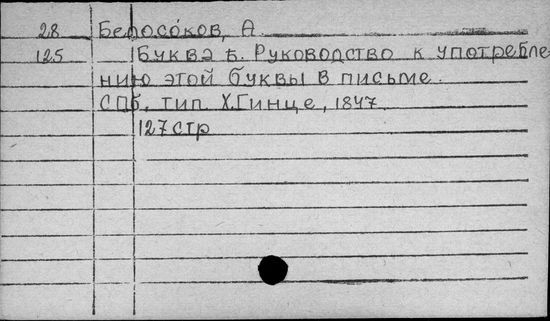 28 Белосо́ков, А
125 Буква Ѣ. Руководство к употребле-
нию этой буквы в письме.
СПб, тип. Х.Гинце, 1847.
127 стр